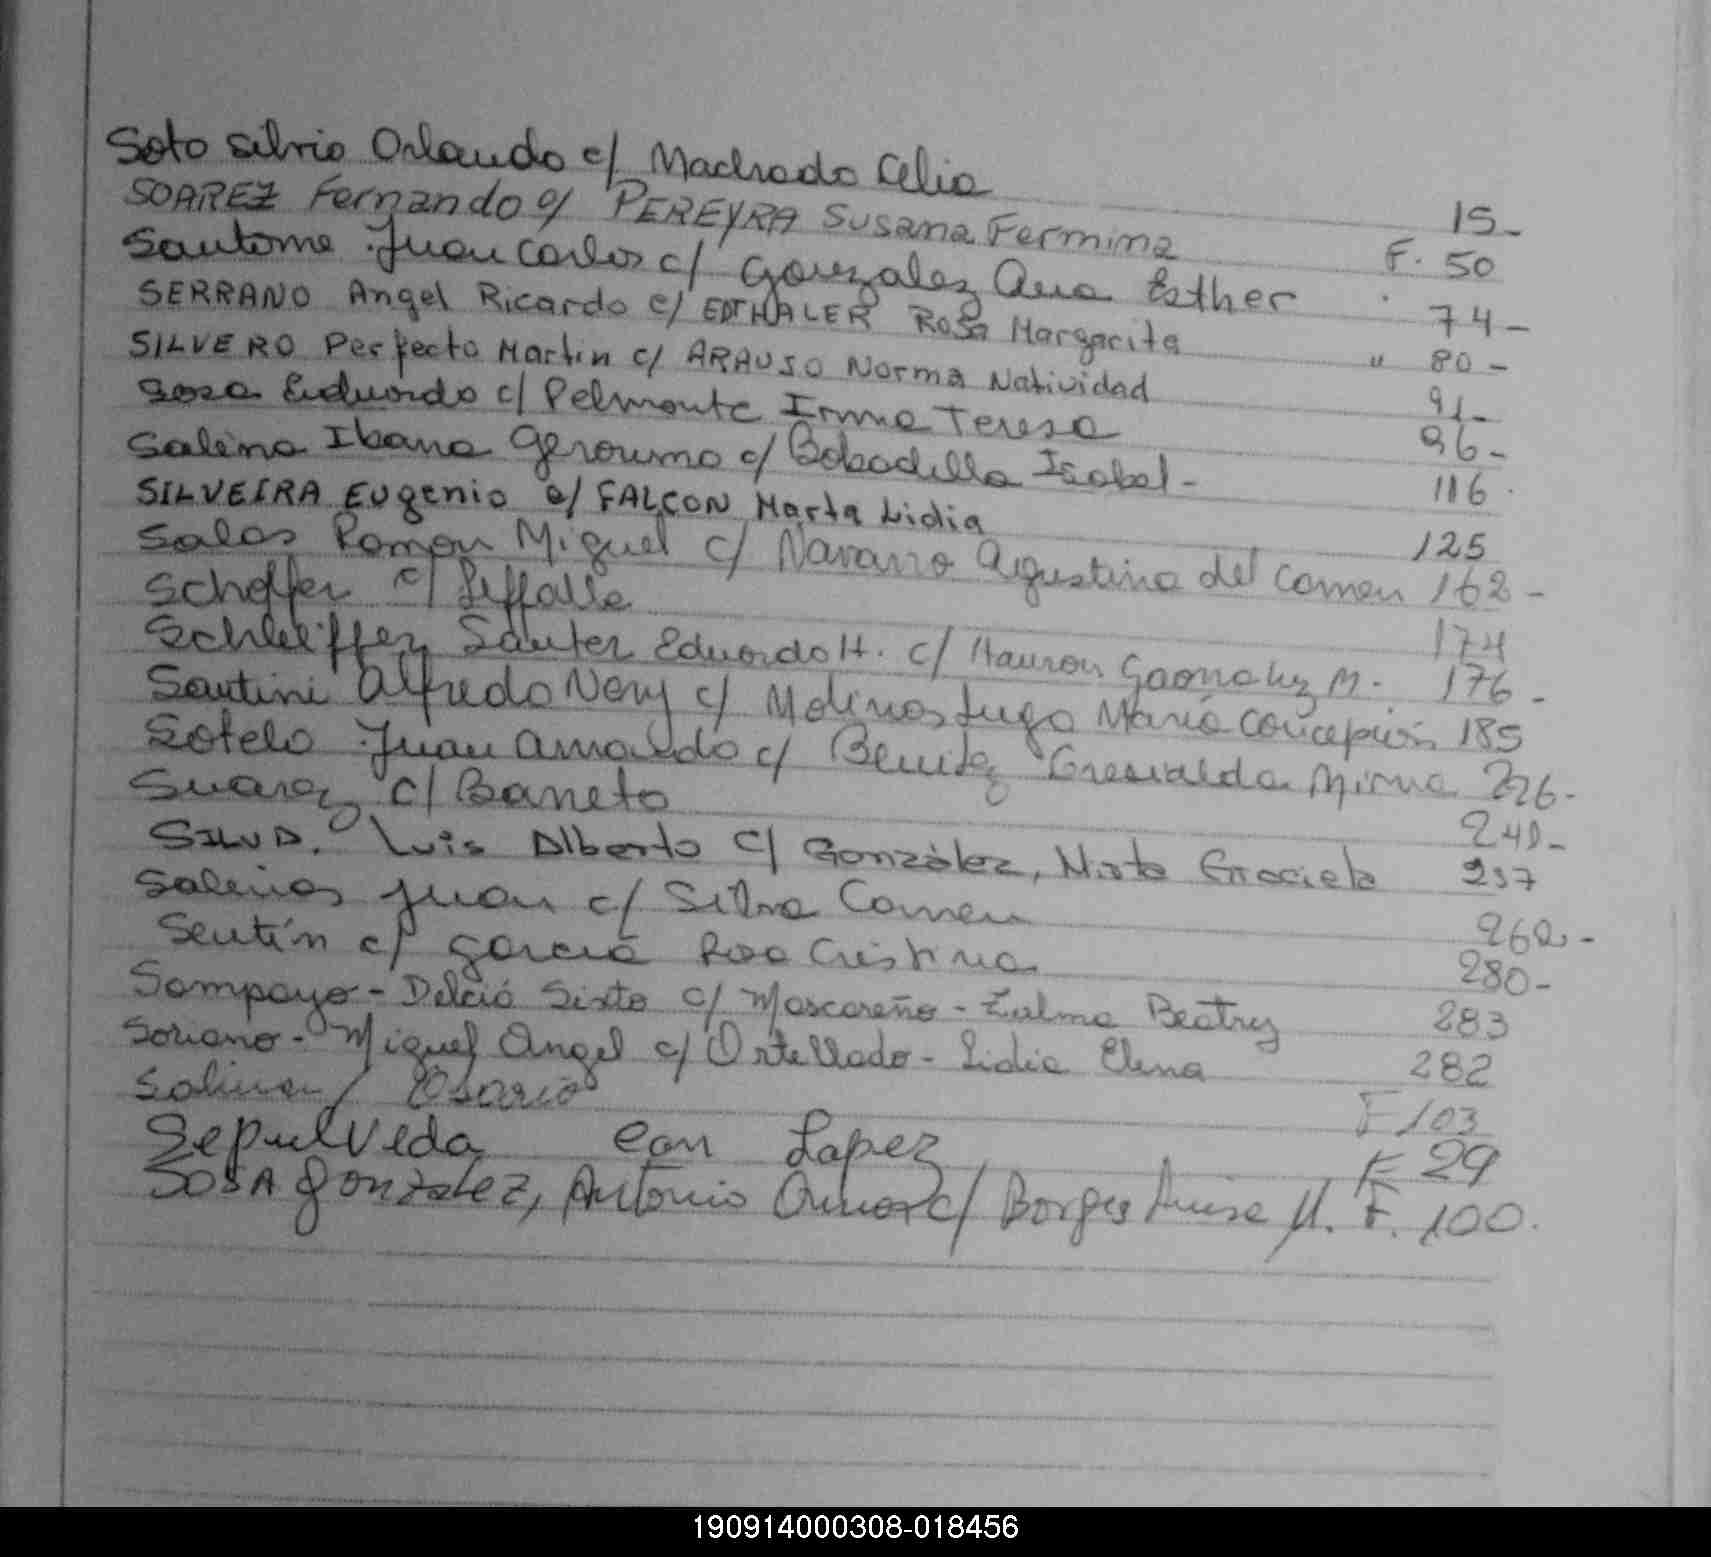 Soto Silvio Orlando c/ Machado Celia 15-
SOAREZ Fernando c/ PEREYRA Susana Fermina F. 50
Santome Juan Carlos c/ Gonzalez Ana Esther 74-
SERRANO Angel Ricardo c/ EDTHALER Rosa Margarita " 80-
SILVERO Perfecto Martin c/ ARAUSO Norma Natividad 91-
Sosa Eduardo c/ Pelmonte Irma Teresa 96-
Salina Ibana Geronimo c/ Bobadilla Isabel - 116
SILVEIRA Eugenio c/ FALCON Marta Lidia 125
Salas Ramon Miguel c/ Navarro Agustina del Carmen 162-
Scheffer c/ 174
Schleiffer Sauter Eduardo H. c/ M. 176-
Santini Alfredo Nery c/ Molinas Lugo Maria Concepción 185
Sotelo Juan Arnaldo c/ Benitez Mirna 226-
Suarez c/ Barreto 240-
Luis Alberto c/ González, Mirta Graciela 257
Salinas Juan c/ Silva Carmen 260-
Sentin c/ Garcia Rosa Cristina 280-
Sampayo - Delcio Sixto c/ Mascareño - Zulma Beatriz 283
Soriano - Miguel Angel c/ Ortellado - Lidia Elena 282
Osario F 103
Sepulveda con Lopez F 29
SOSA Gonzalez, Antonio c/ Borges Luisa M. F. 100.
190914000308-018456